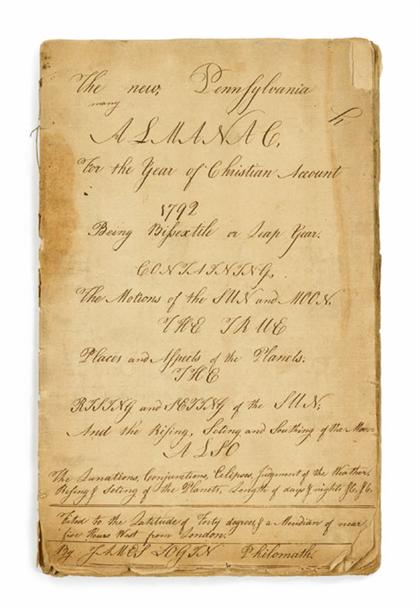 The new, Pennsylvania
many
ALMANAC,
For the Year of Christian Account
1792
Being Bissextile or Leap Year.
CONTAINING,
The Motions of the SUN and MOON,
THE TRUE
Places and Aspects of the Planets.
THE
RISING and SETING of the SUN;
And the Rising, Seting and Southing of the Moon
ALSO
The Lunations, Conjunctions, Eclipses, Judgment of the Weather,
Rising & Seting of the Planets, Length of days & nights &c, &c,
Fited to the Latitude of Forty degrees, & a Meridian of near
five Hours West from London.
By JAMES LOGIN Philomath.